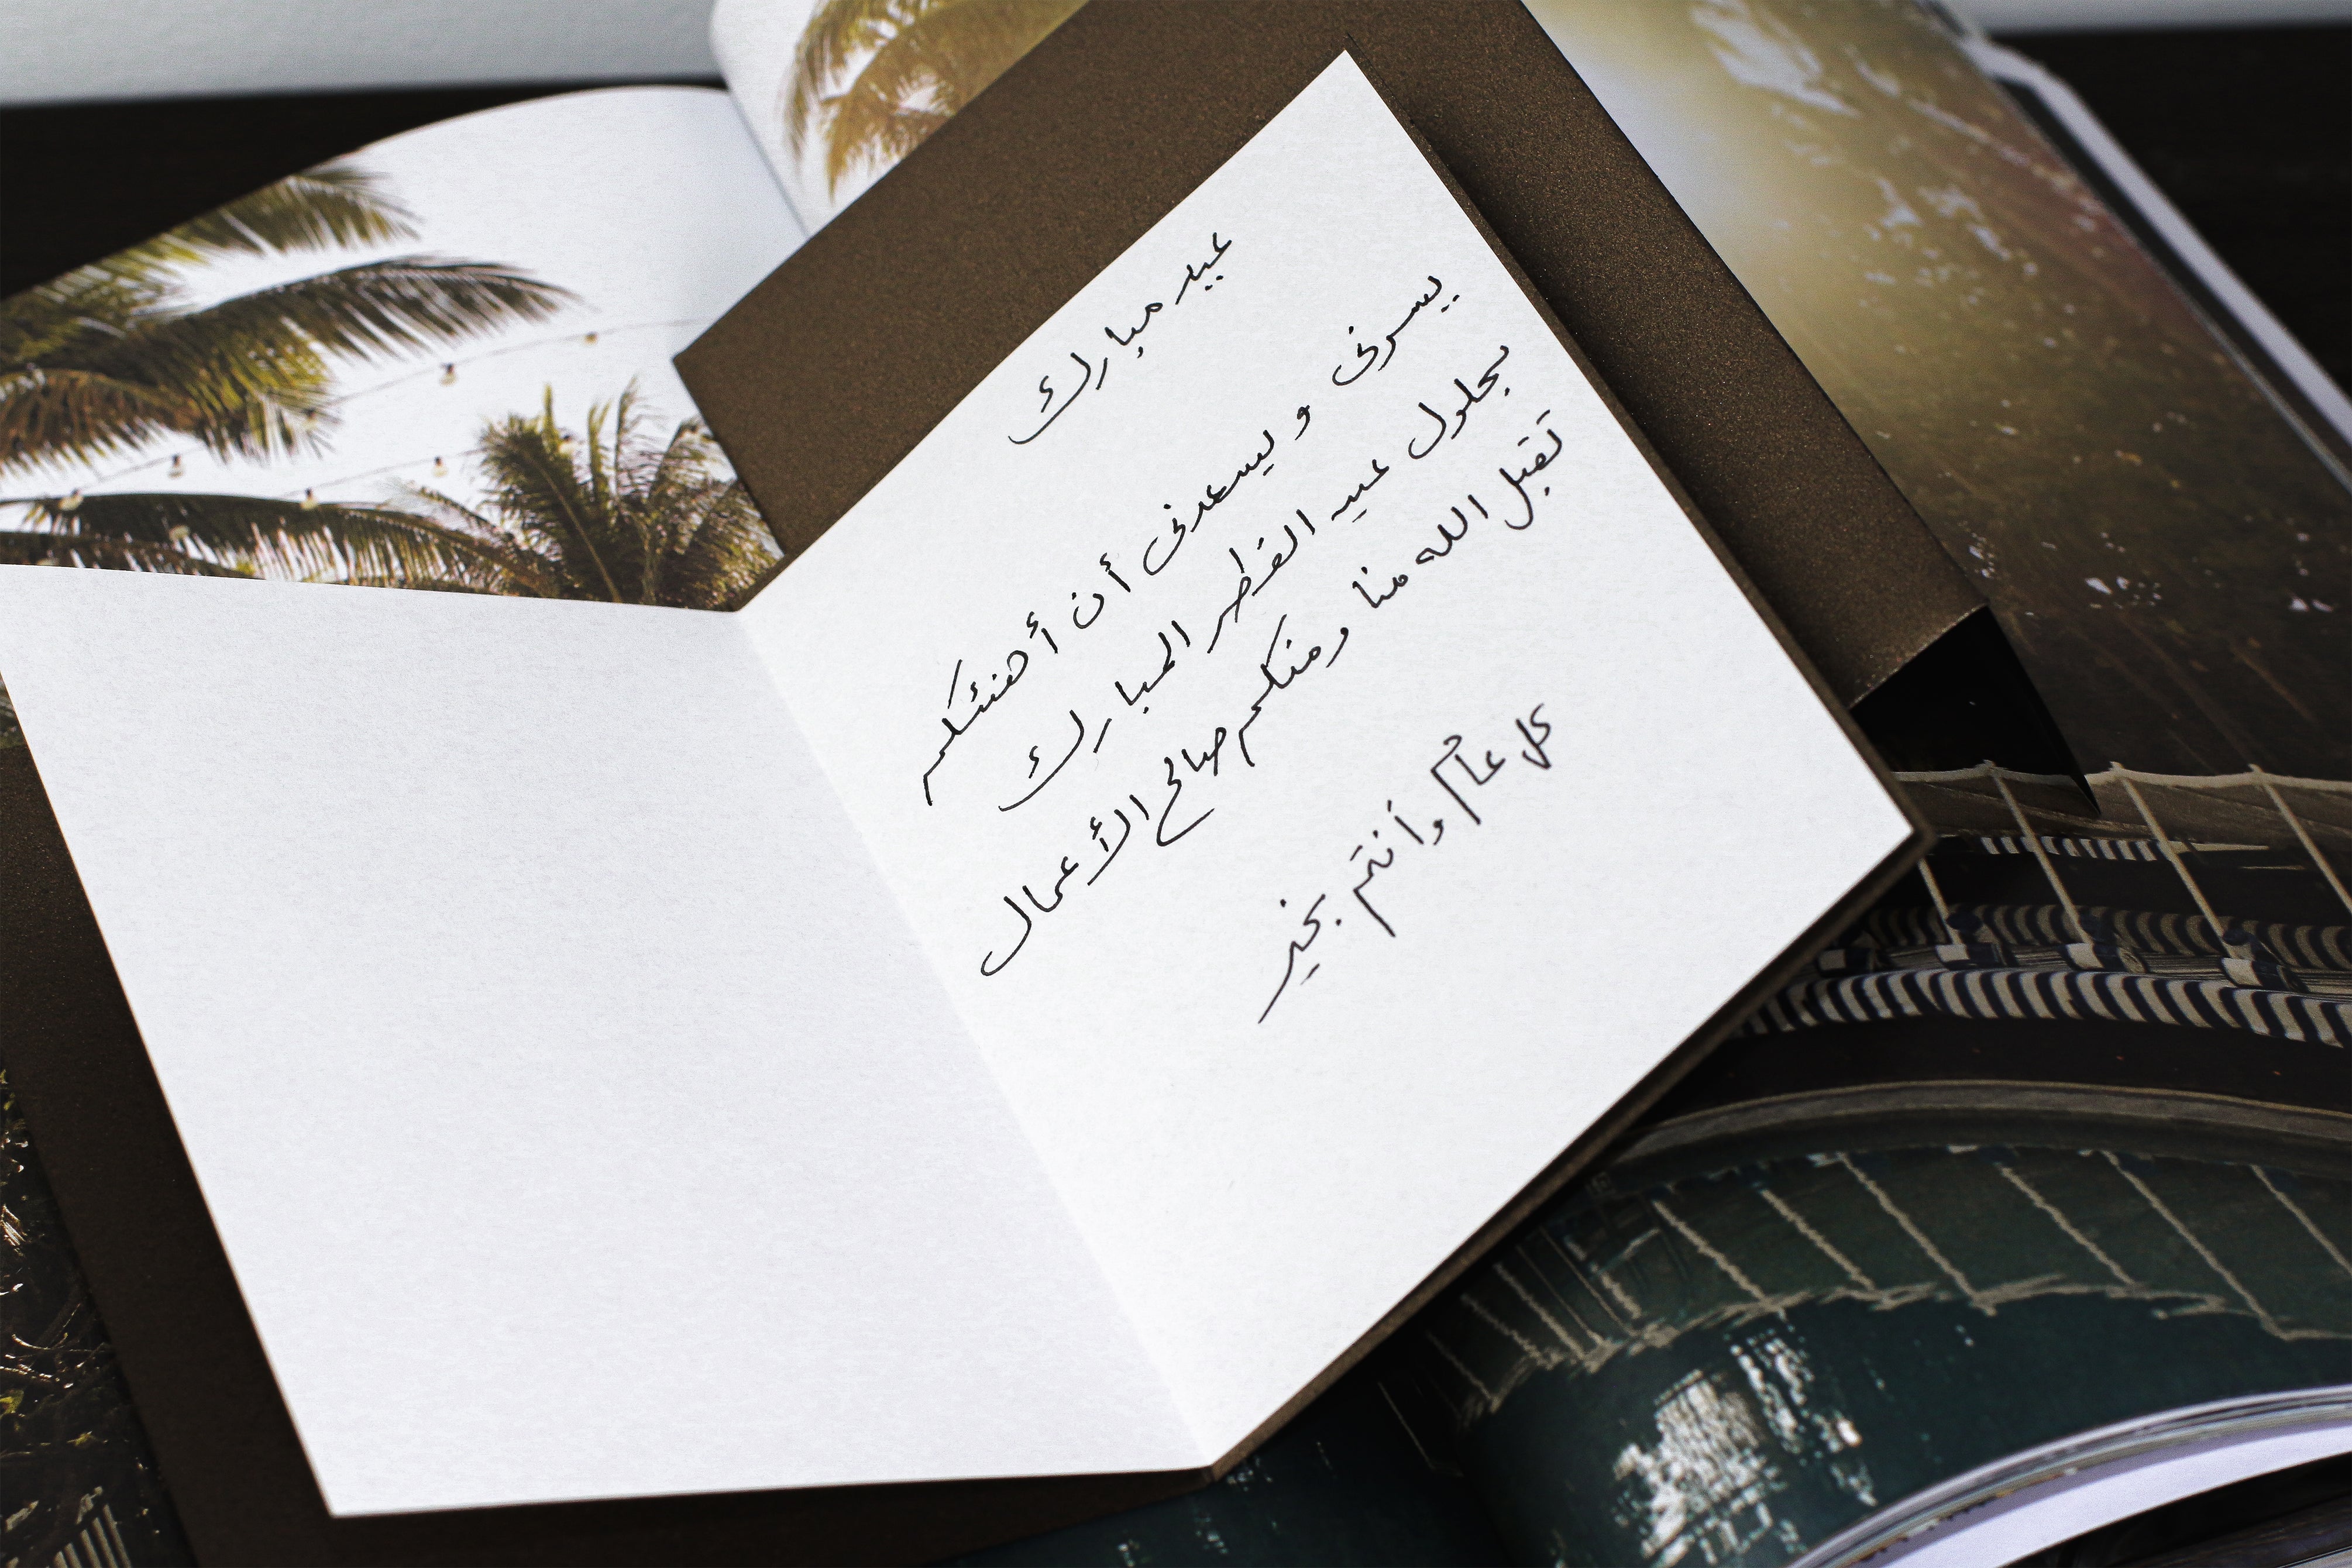 عيد مبارك
يسرنى و يسعدنى أن أهنئكم
بحلول عيد الفطر المبارك
تقبل الله منا ومنكم صالح الأعمال
كل عام وأنتم بخير